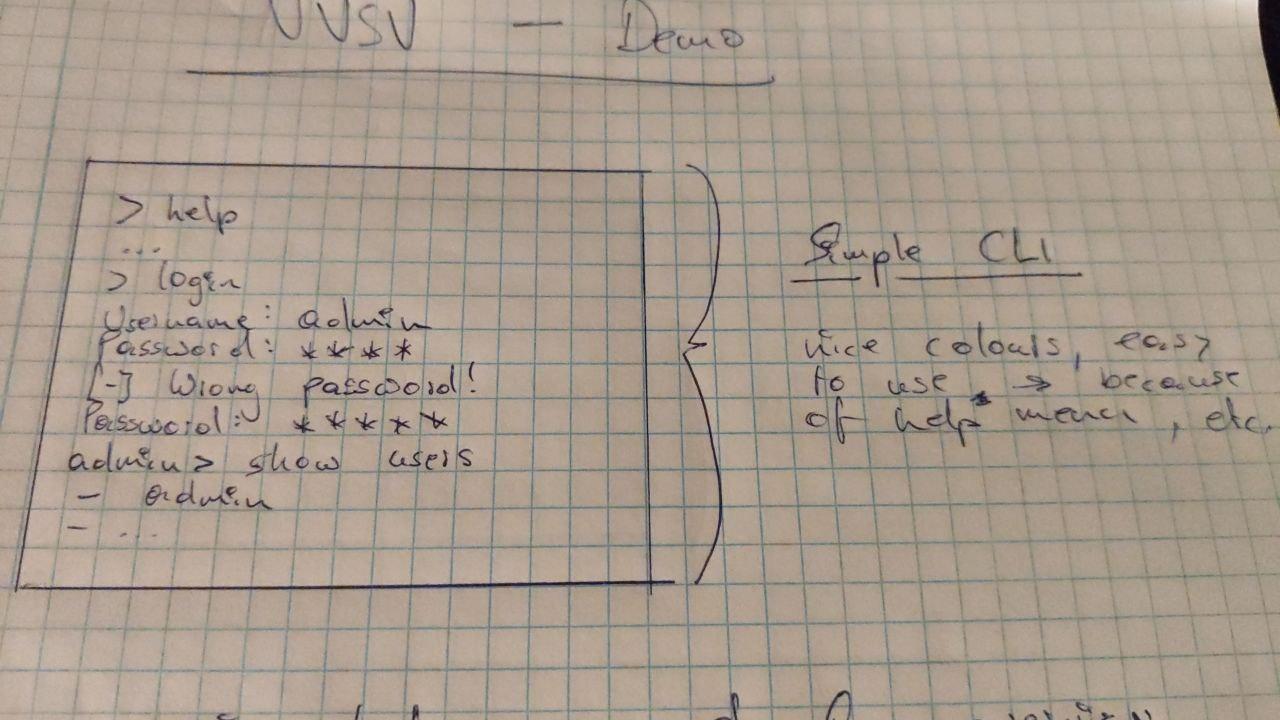 VVSV — Demo
> help
...
> login
Username: admin
Password: ****
[-] Wrong password!
Password: *****
admin> show users
- admin
- ...
Simple CLI
nice colours, easy
to use → because
of help menu, etc.